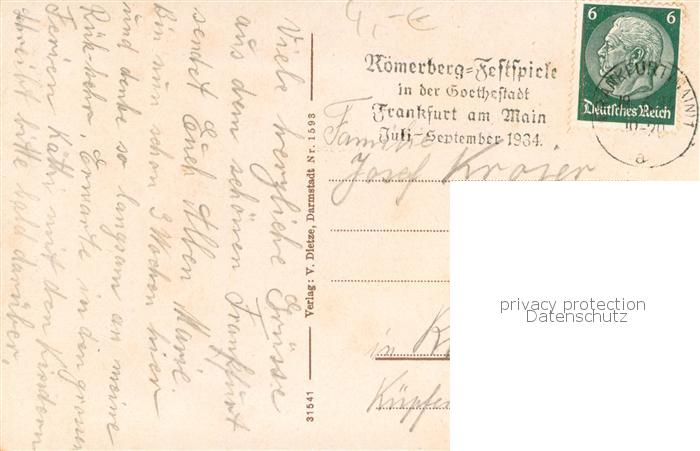 Viele herzliche Grüsse
aus dem schönen Frankfurt
sendet Euch Allen Marie.
Bin nun schon 3 Wochen hier
und denke so langsam an meine
Rück-kehr. Erwarte in den grossen
Ferien Käth. mit den Kindern
schreibt bitte bald darüber.
4,- €
Römerberg=Festspiele
in der Goethestadt
Frankfurt am Main
Juli-September 1934.
6 6
Deutsches Reich
FRANKFURT (MAIN) 1
10-20
a
Familie
Josef Kroier
in K
Küpfe
31541
Verlag: V. Dietze, Darmstadt Nr. 1593
privacy protection
Datenschutz